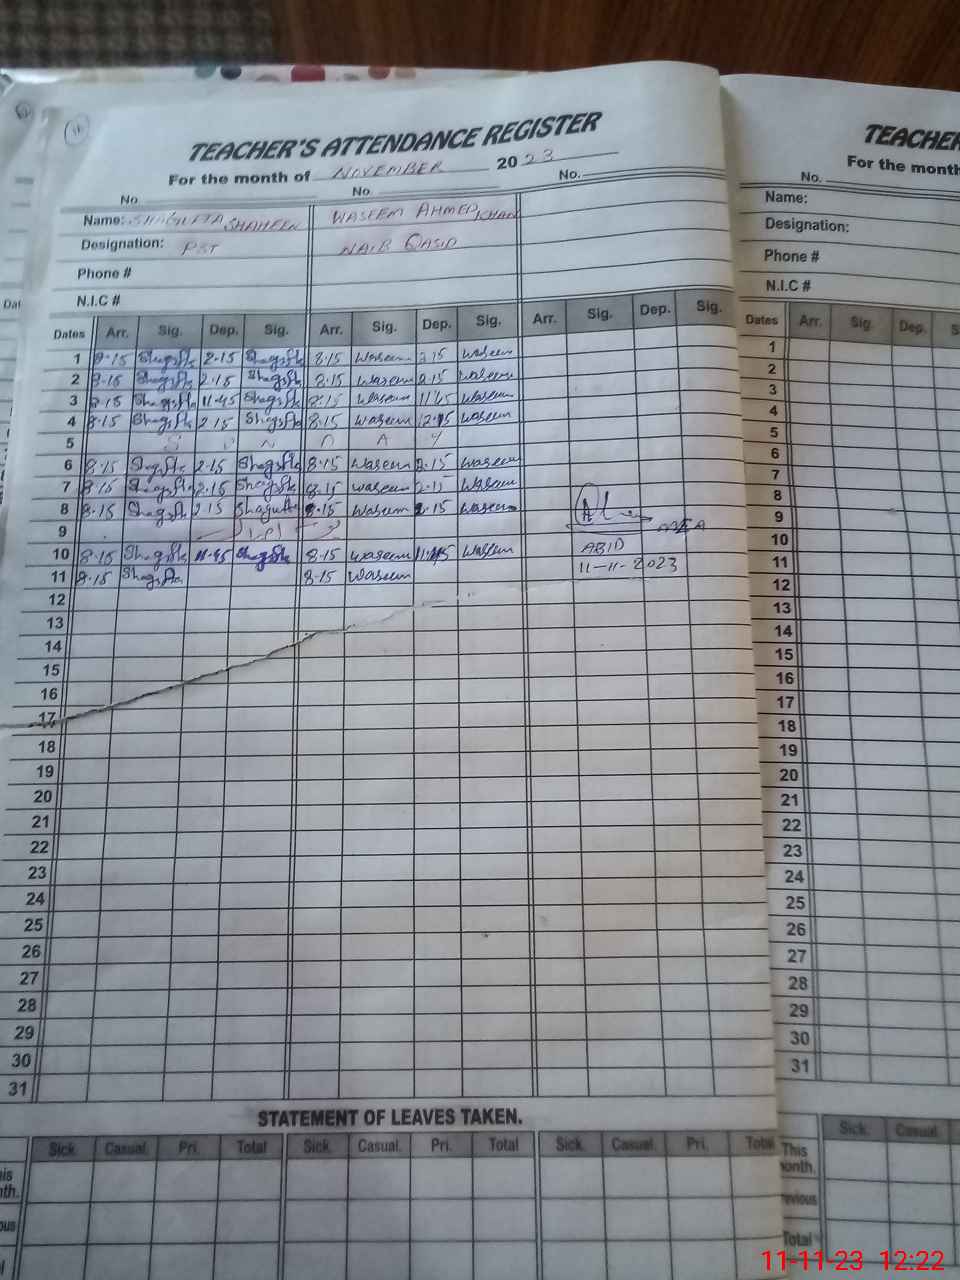 TEACHER'S ATTENDANCE REGISTER
For the month of NOVEMBER 2023
No. No. No.
Name: SHAGUFTA SHAHEEN WASEEM AHMED KHAN
Designation: PST NAIB QASID
Phone #
N.I.C #
Dates Arr. Sig. Dep. Sig. Arr. Sig. Dep. Sig. Arr. Sig. Dep. Sig.
1 8.15 Shagufta 2.15 Shagufta 8.15 Waseem 2.15 Waseem
2 8.15 Shagufta 2.15 Shagufta 8.15 Waseem 2.15 Waseem
3 8.15 Shagufta 11.45 Shagufta 8.15 Waseem 11.45 Waseem
4 8.15 Shagufta 2.15 Shagufta 8.15 Waseem 2.15 Waseem
5 S U N D A Y
6 8.15 Shagufta 2.15 Shagufta 8.15 Waseem 2.15 Waseem
7 8.15 Shagufta 2.15 Shagufta 8.15 Waseem 2.15 Waseem
8 8.15 Shagufta 2.15 Shagufta 8.15 Waseem 2.15 Waseem
9 MEA
10 8.15 Shagufta 11.45 Shagufta 8.15 Waseem 11.45 Waseem ABID
11 8.15 Shagufta 8.15 Waseem 11-11-2023
12
13
14
15
16
17
18
19
20
21
22
23
24
25
26
27
28
29
30
31
STATEMENT OF LEAVES TAKEN.
Sick. Casual. Pri. Total Sick. Casual. Pri. Total Sick. Casual. Pri. Total
TEACHER
For the month
No.
Name:
Designation:
Phone #
N.I.C #
Dates Arr. Sig. Dep.
1
2
3
4
5
6
7
8
9
10
11
12
13
14
15
16
17
18
19
20
21
22
23
24
25
26
27
28
29
30
31
Sick. Casual
This
month.
Total
11-11-23 12:22